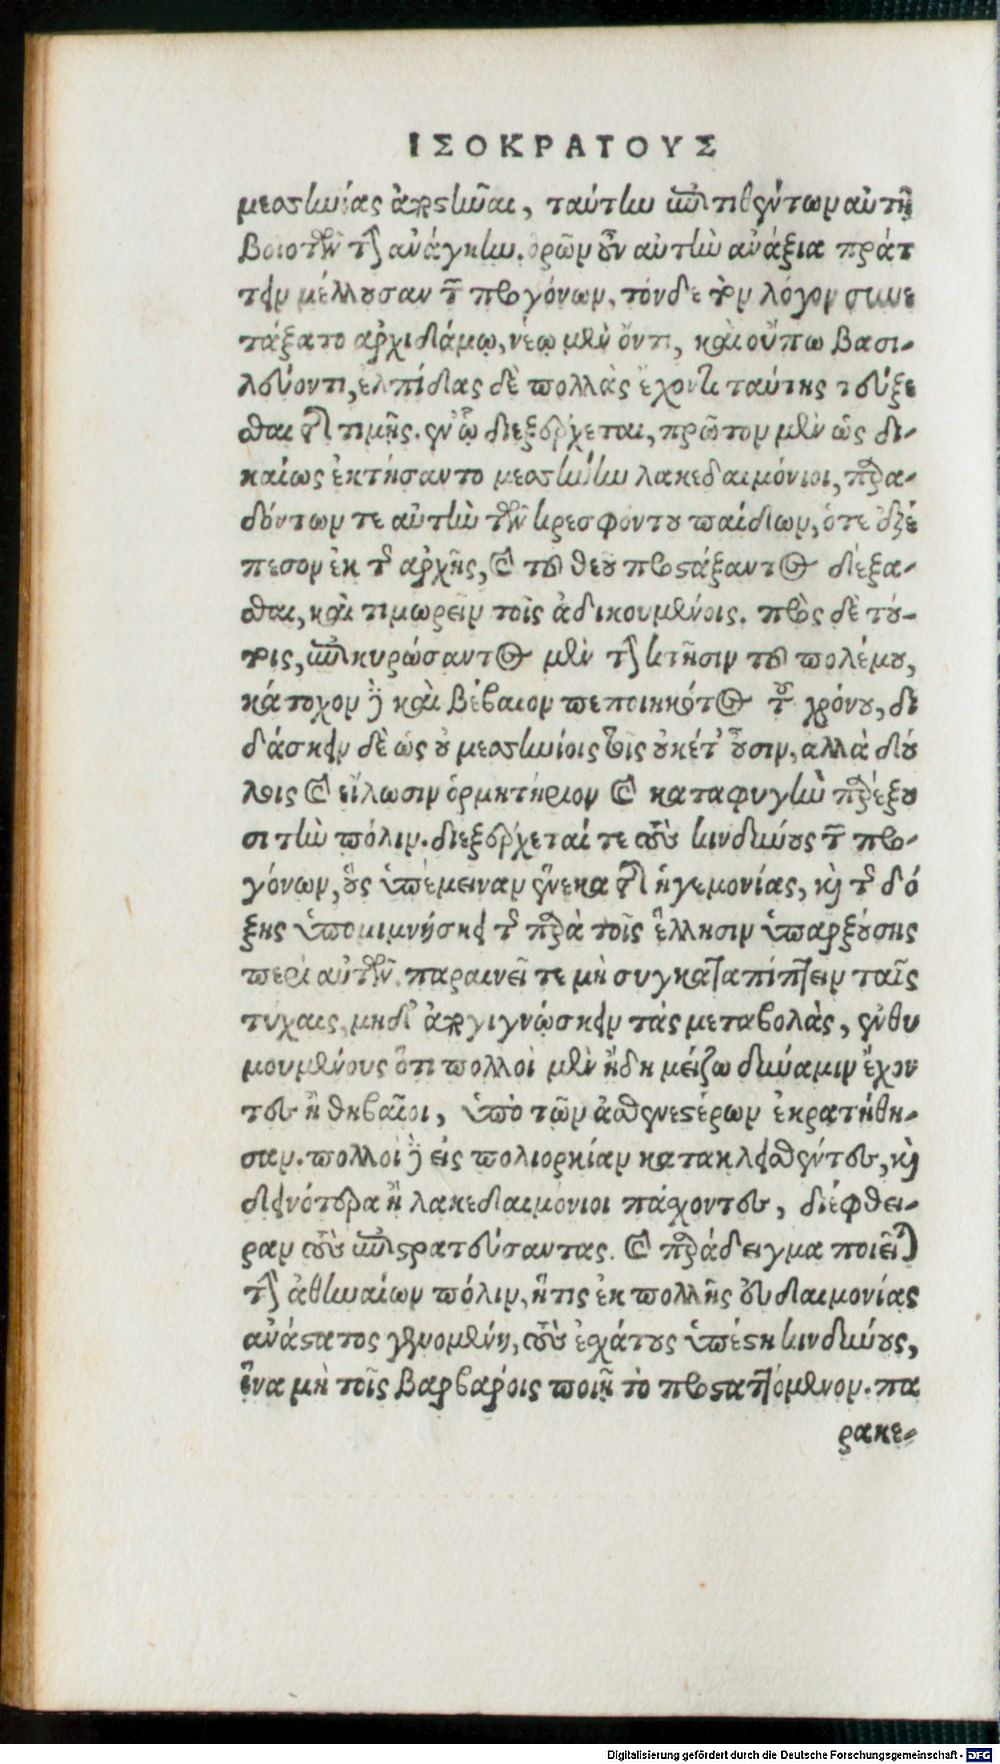 ΙΣΟΚΡΑΤΟΥΣ
μεσσηνίας ἀποστῆναι, ταύτην ἐπιτιθέντων αὐτῇ
βοιοτῶν τὴν ἀνάγκην. ὁρῶν οὖν αὐτὴν ἀνάξια πράτ
τειν μέλλουσαν τῶν προγόνων, τόνδε τὸν λόγον συνε
τάξατο ἀρχιδάμῳ, νέῳ μὲν ὄντι, καὶ οὔπω βασι-
λεύοντι, ἐλπίδας δὲ πολλὰς ἔχοντι ταύτης τεύξε
σθαι τῆς τιμῆς. ἐν ᾧ διεξέρχεται, πρῶτον μὲν ὡς δι-
καίως ἐκτήσαντο μεσσήνην λακεδαιμόνιοι, παρα-
δόντων τε αὐτὴν τῶν κρεσφόντου παίδων, ὅτε ἐξέ
πεσον ἐκ τῆς ἀρχῆς, καὶ τοῦ θεοῦ προστάξαντος δέξα-
σθαι, καὶ τιμωρεῖν τοῖς ἀδικουμένοις. πρὸς δὲ τού-
τοις, ἐπικυρώσαντος μὲν τὴν κτῆσιν τοῦ πολέμου,
κάτοχον δὲ καὶ βέβαιον πεποιηκότος τοῦ χρόνου, δι
δάσκειν δὲ ὡς οὐ μεσσηνίοις τοῖς οὐκέτ' οὖσιν, ἀλλὰ δού
λοις καὶ εἵλωσιν ὁρμητήριον καὶ καταφυγὴν παρέξου
σι τὴν πόλιν. διεξέρχεταί τε τοὺς κινδύνους τῶν προ-
γόνων, οὓς ὑπέμειναν ἕνεκα τῆς ἡγεμονίας, καὶ τῆς δό
ξης ὑπομιμνήσκει τῆς παρὰ τοῖς ἕλλησιν ὑπαρξούσης
περὶ αὐτῶν. παραινεῖ τε μὴ συγκαταπίπτειν ταῖς
τύχαις, μηδ' ἀπογιγνώσκειν τὰς μεταβολὰς, ἐνθυ
μουμένους ὅτι πολλοὶ μὲν ἤδη μείζω δύναμιν ἔχον
τες ἢ θηβαῖοι, ὑπὸ τῶν ἀσθενεστέρων ἐκρατήθη-
σαν. πολλοὶ δὲ εἰς πολιορκίαν κατακλεισθέντες, καὶ
δεινότερα ἢ λακεδαιμόνιοι πάσχοντες, διέφθει-
ραν τοὺς ἐπιστρατεύσαντας. καὶ παράδειγμα ποιεῖται
τὴν ἀθηναίων πόλιν, ἥτις ἐκ πολλῆς εὐδαιμονίας
ἀνάστατος γενομένη, τοὺς ἐσχάτους ὑπέστη κινδύνους,
ἵνα μὴ τοῖς βαρβάροις ποιῇ τὸ προσταττόμενον. πα
ρακε-
Digitalisierung gefördert durch die Deutsche Forschungsgemeinschaft - DFG